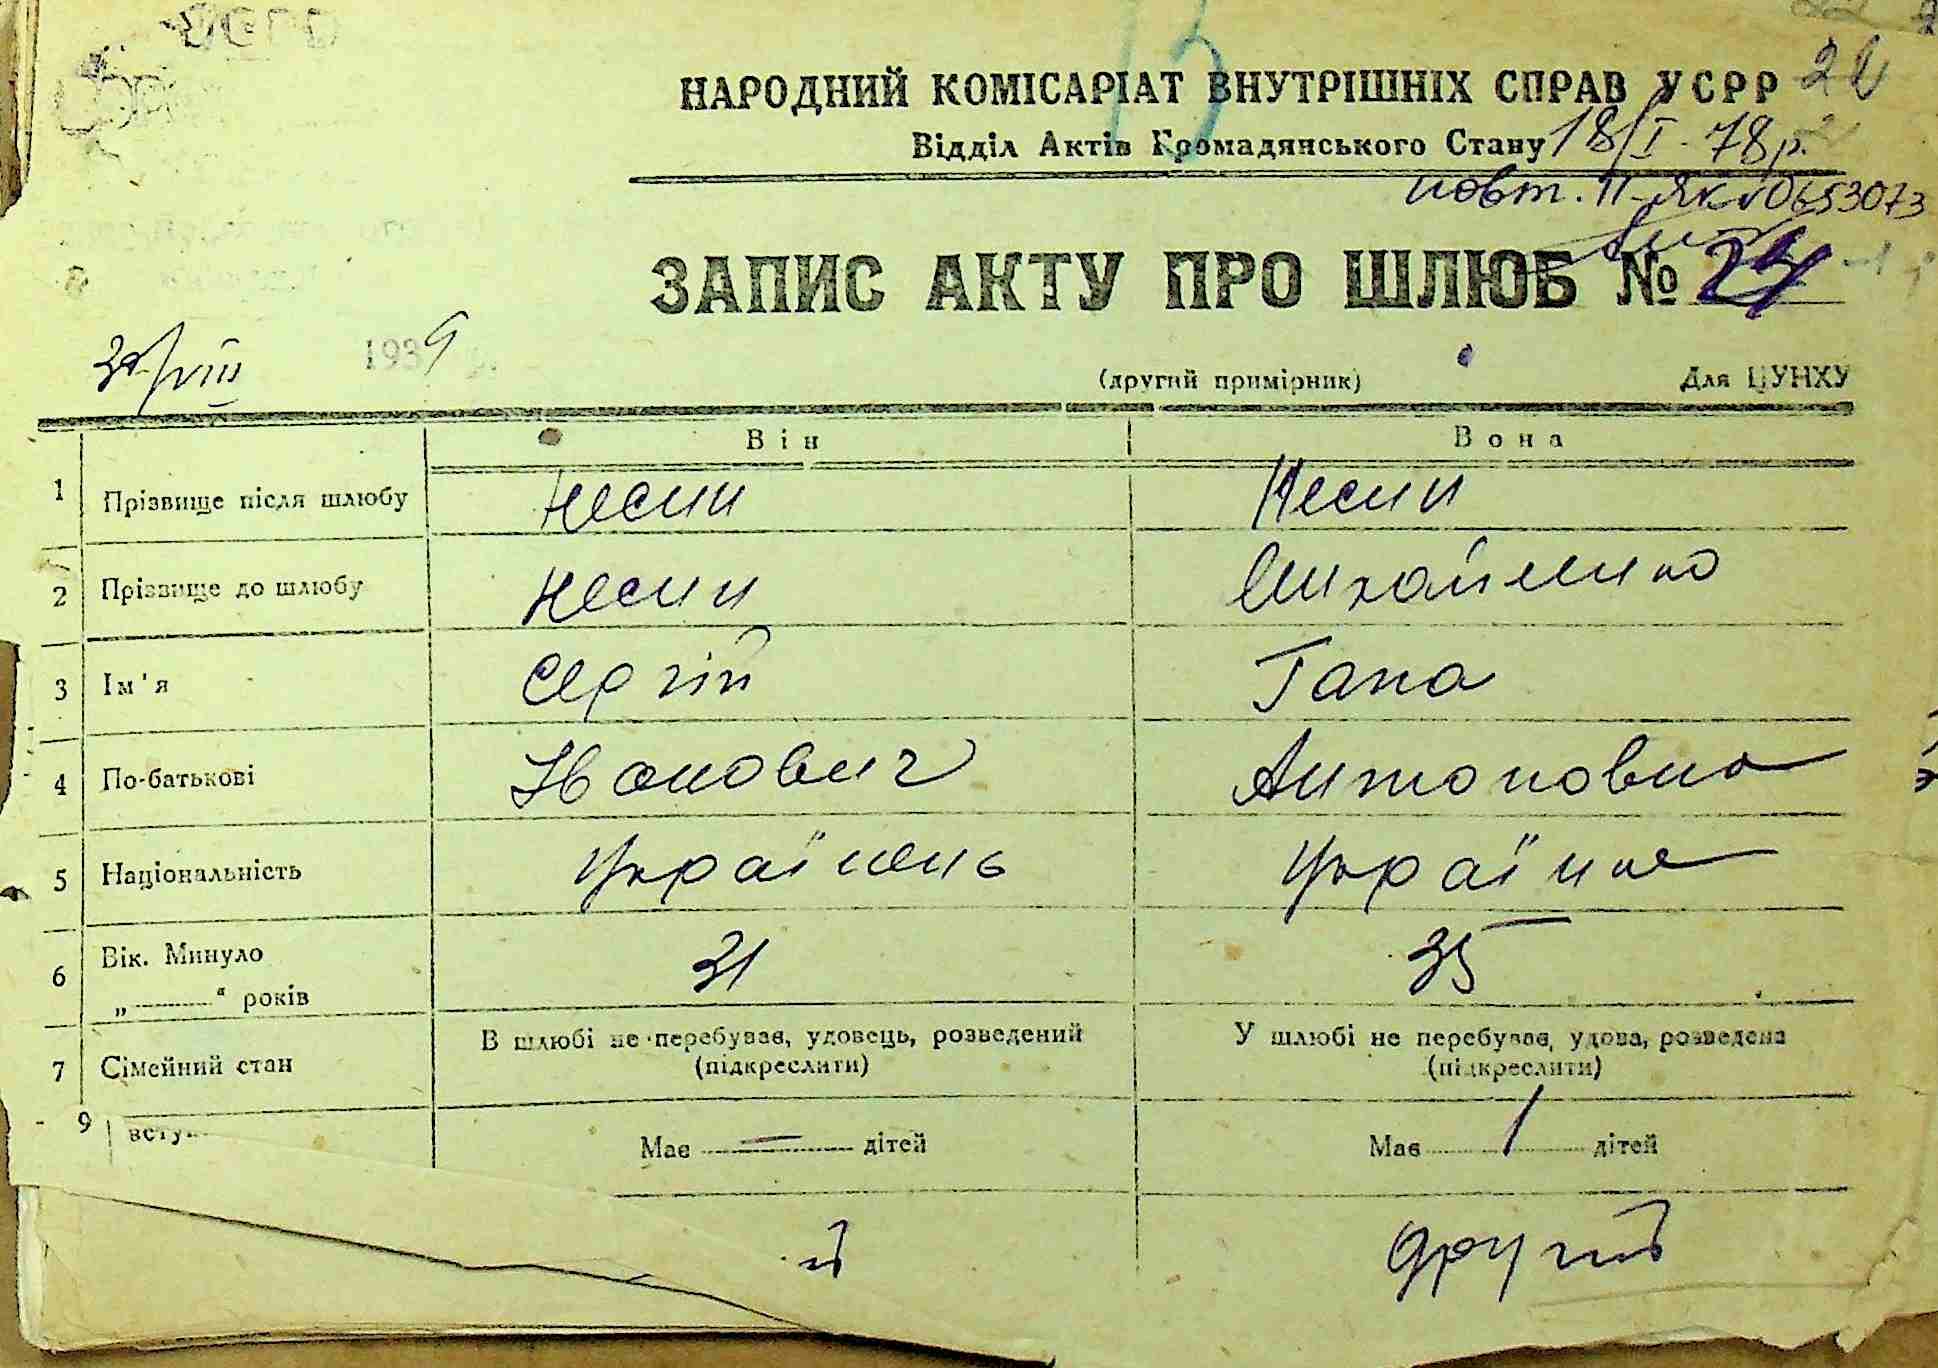 22
НАРОДНИЙ КОМІСАРІАТ ВНУТРІШНІХ СПРАВ УСРР
Відділ Актів Громадянського Стану 18/I-78р.
повт. II-ЯК №0653073
ЗАПИС АКТУ ПРО ШЛЮБ № 24
/VIII 1939 р.
(другий примірник) Для ЦУНХУ
Він Вона
1 Прізвище після шлюбу Несин Несин
2 Прізвище до шлюбу Несин Михайленко
3 Ім'я Сергій Гана
4 По-батькові Іванович Антоновна
5 Національність Українець Українка
6 Вік. Минуло 31 35
„ " років
7 Сімейний стан В шлюбі не перебуває, удовець, розведений У шлюбі не перебуває, удова, розведена
(підкреслити) (підкреслити)
9 всту Має — дітей Має 1 дітей
й другий